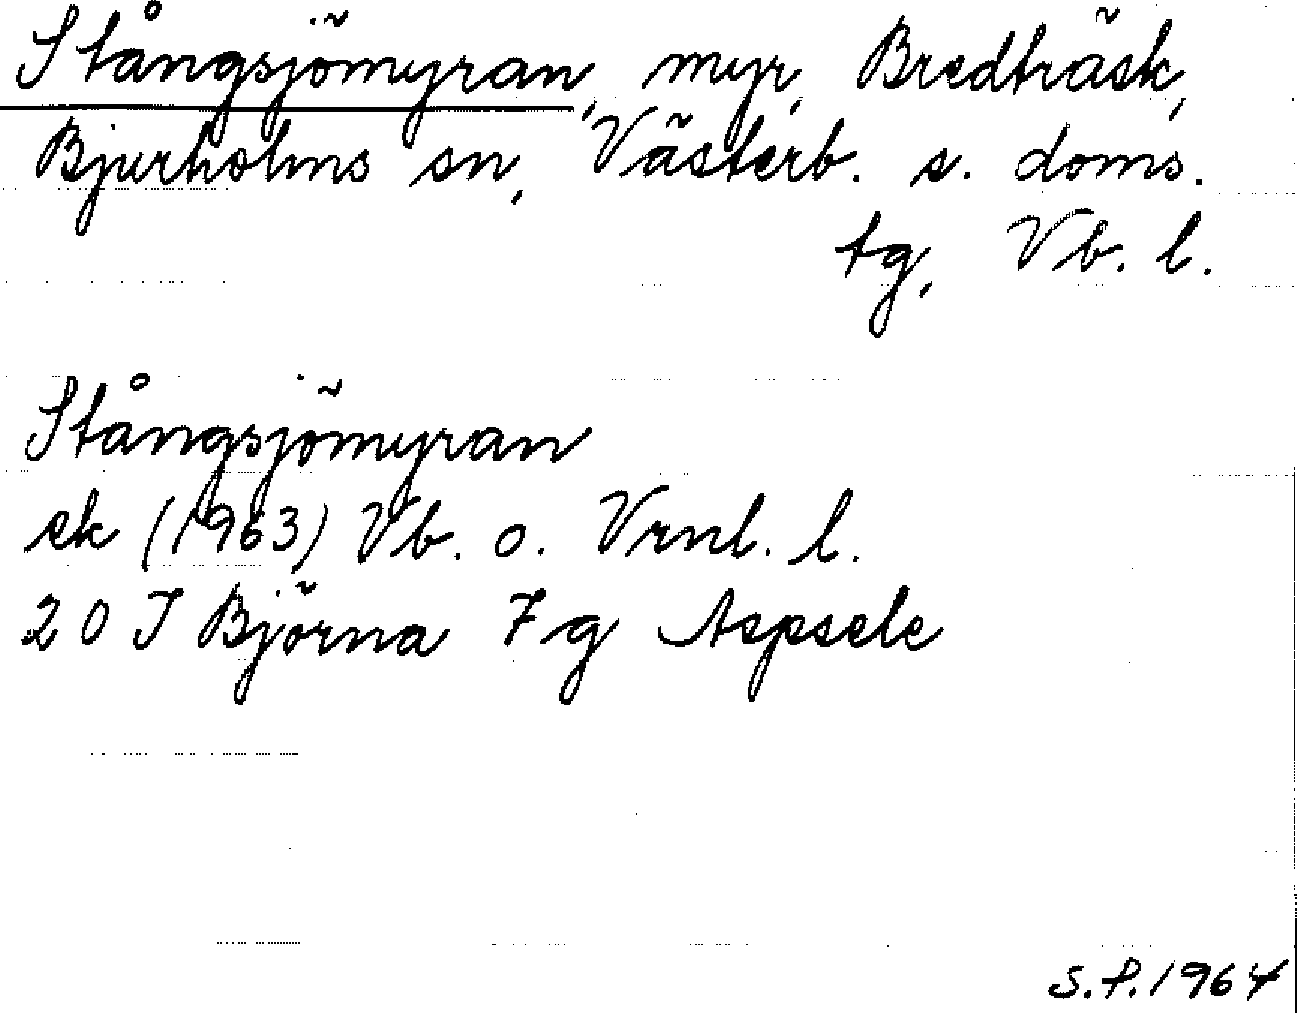 Stångsjömyran, myr, Bredträsk,
Bjurholms sn, Västerb. s. doms.
tg, Vb. l.
Stångsjömyran
ek (1963) Vb. o. Vrnl. l.
20 J Björna 7 g Aspsele
S.P. 1964